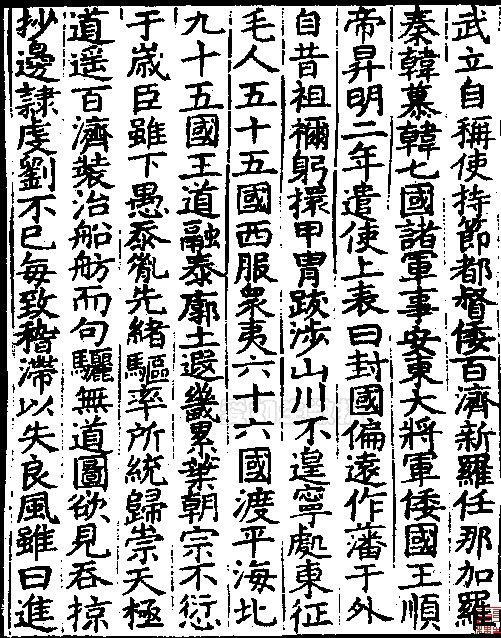 武立自稱使持節都督倭百濟新羅任那加羅
秦韓慕韓七國諸軍事安東大將軍倭國王順
帝昇明二年遣使上表曰封國偏遠作藩于外
自昔祖禰躬擐甲冑跋渉山川不遑寧處東征
毛人五十五國西服衆夷六十六國渡平海北
九十五國王道融泰廓土遐畿累葉朝宗不愆
于歳臣雖下愚忝胤先緒驅率所統歸崇天極
道遥百濟裝治船舫而句驪無道圖欲見吞掠
抄邊隷虔劉不已毎致稽滯以失良風雖曰進